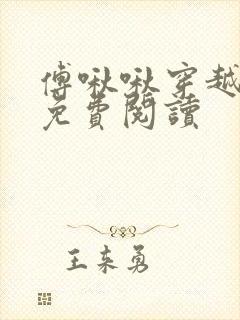 傅啾啾穿越
免費閱讀
王来勇